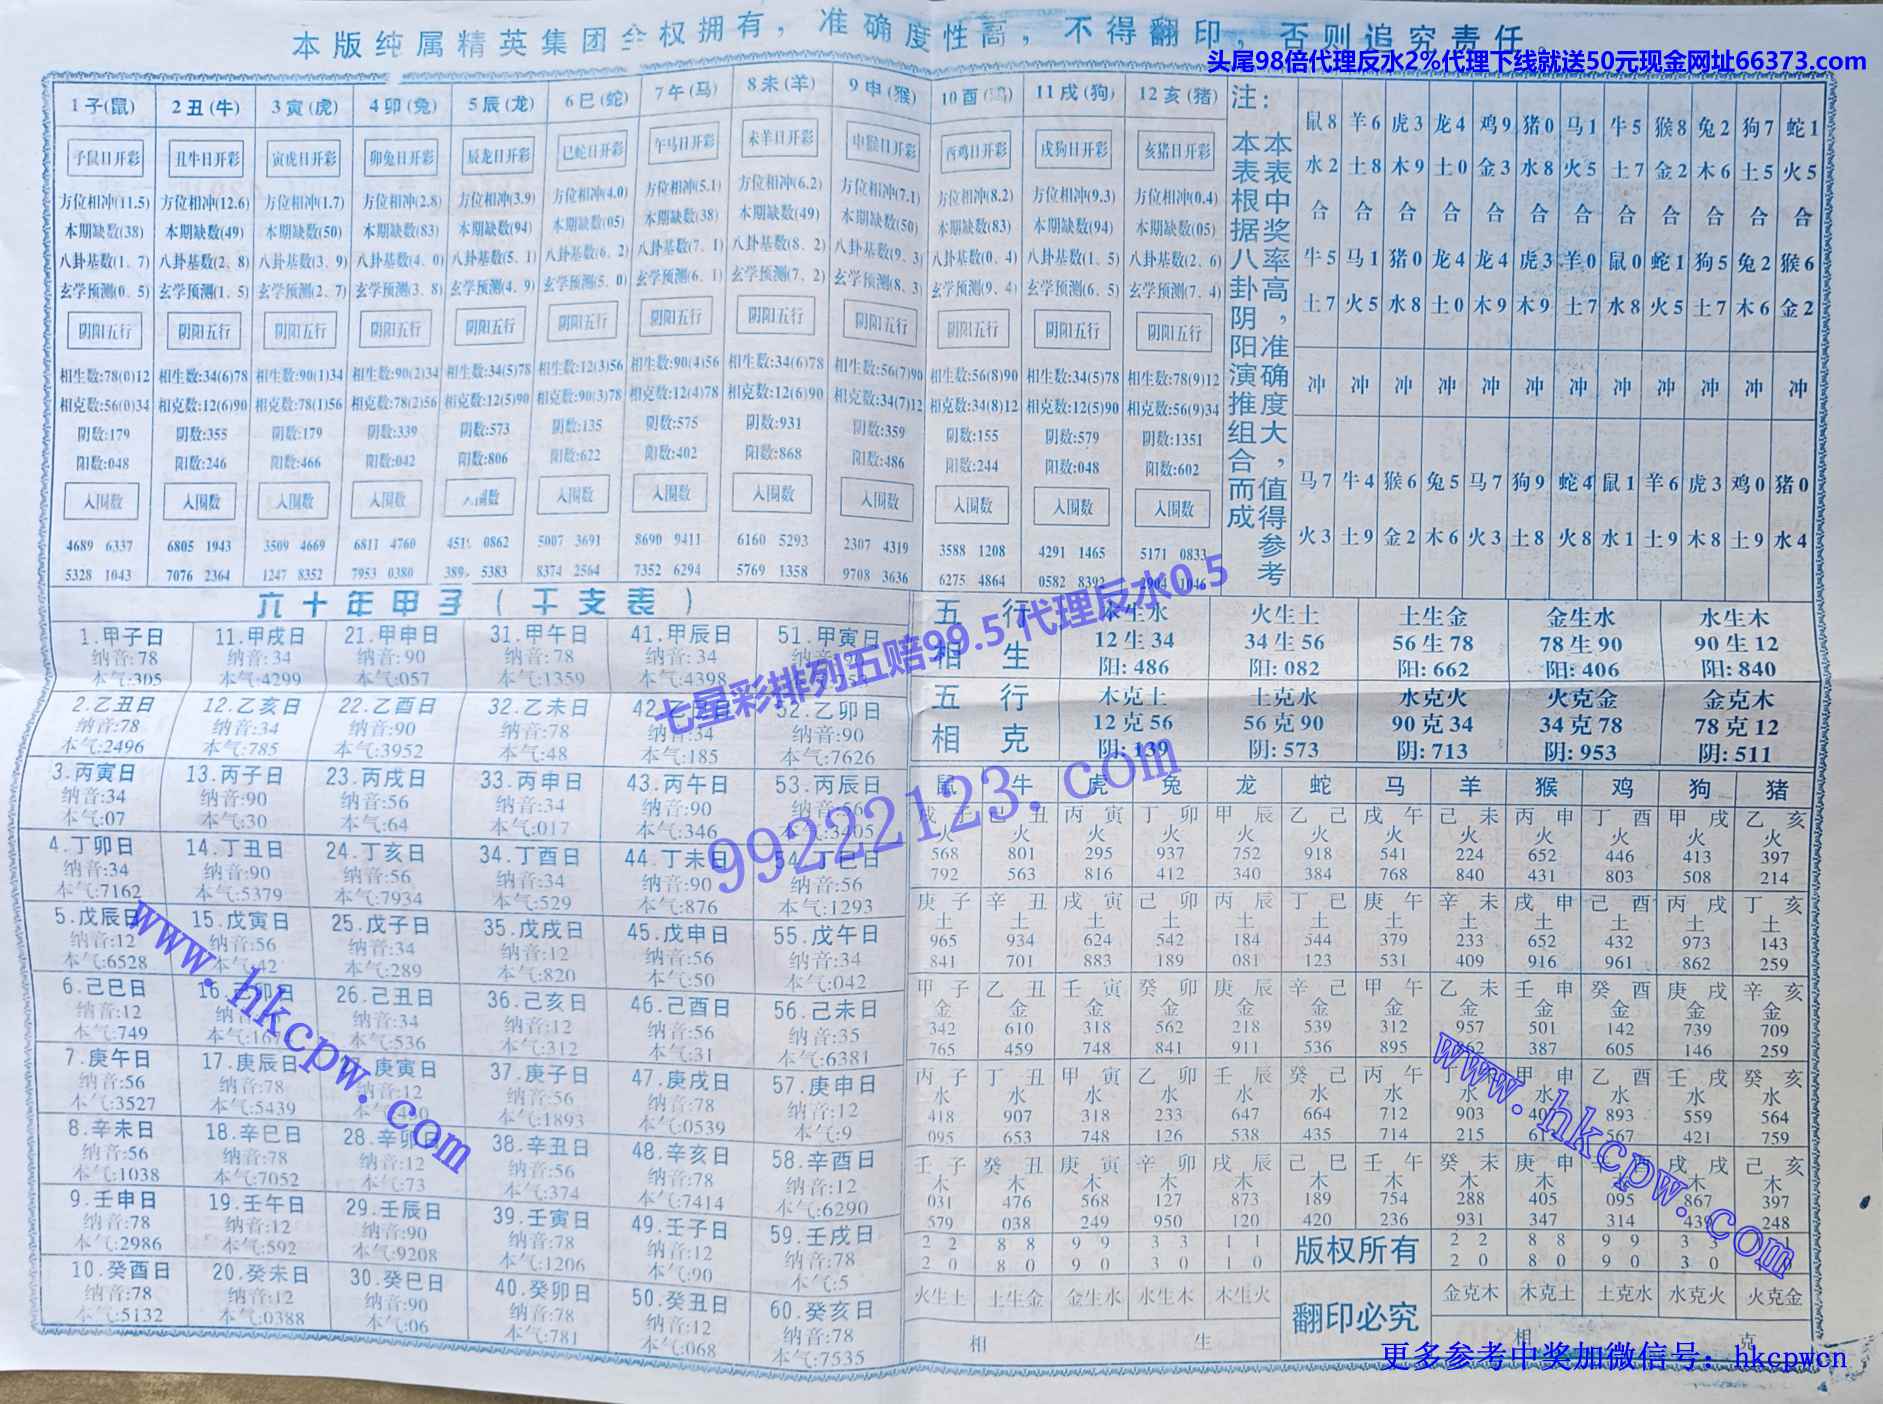 本版纯属精英集团全权拥有，准确度性高，不得翻印，否则追究责任
头尾98倍代理反水2%代理下线就送50元现金网址66373.com
1子(鼠) 2丑(牛) 3寅(虎) 4卯(兔) 5辰(龙) 6巳(蛇) 7午(马) 8未(羊) 9申(猴) 10酉(鸡) 11戌(狗) 12亥(猪)
子鼠日开彩 丑牛日开彩 寅虎日开彩 卯兔日开彩 辰龙日开彩 巳蛇日开彩 午马日开彩 未羊日开彩 申猴日开彩 酉鸡日开彩 戌狗日开彩 亥猪日开彩
方位相冲(11.5) 方位相冲(12.6) 方位相冲(1.7) 方位相冲(2.8) 方位相冲(3.9) 方位相冲(4.0) 方位相冲(5.1) 方位相冲(6.2) 方位相冲(7.1) 方位相冲(8.2) 方位相冲(9.3) 方位相冲(0.4)
本期缺数(38) 本期缺数(49) 本期缺数(50) 本期缺数(83) 本期缺数(94) 本期缺数(05) 本期缺数(38) 本期缺数(49) 本期缺数(50) 本期缺数(83) 本期缺数(94) 本期缺数(05)
八卦基数(1、7) 八卦基数(2、8) 八卦基数(3、9) 八卦基数(4、0) 八卦基数(5、1) 八卦基数(6、2) 八卦基数(7、1) 八卦基数(8、2) 八卦基数(9、3) 八卦基数(0、4) 八卦基数(1、5) 八卦基数(2、6)
玄学预测(0、5) 玄学预测(1、5) 玄学预测(2、7) 玄学预测(3、8) 玄学预测(4、9) 玄学预测(5、0) 玄学预测(6、1) 玄学预测(7、2) 玄学预测(8、3) 玄学预测(9、4) 玄学预测(6、5) 玄学预测(7、4)
阴阳五行 阴阳五行 阴阳五行 阴阳五行 阴阳五行 阴阳五行 阴阳五行 阴阳五行 阴阳五行 阴阳五行 阴阳五行 阴阳五行
相生数:78(0)12 相生数:34(6)78 相生数:90(1)34 相生数:90(2)34 相生数:34(5)78 相生数:12(3)56 相生数:90(4)56 相生数:34(6)78 相生数:56(7)90 相生数:56(8)90 相生数:34(5)78 相生数:78(9)12
相克数:56(0)34 相克数:12(6)90 相克数:78(1)56 相克数:78(2)56 相克数:12(5)90 相克数:90(3)78 相克数:12(4)78 相克数:12(6)90 相克数:34(7)12 相克数:34(8)12 相克数:12(5)90 相克数:56(9)34
阴数:179 阴数:355 阴数:179 阴数:339 阴数:573 阴数:135 阴数:575 阴数:931 阴数:359 阴数:155 阴数:579 阴数:1351
阳数:048 阳数:246 阳数:466 阳数:042 阳数:806 阳数:622 阳数:402 阳数:868 阳数:486 阳数:244 阳数:048 阳数:602
入围数 入围数 入围数 入围数 入围数 入围数 入围数 入围数 入围数 入围数 入围数 入围数
4689 6337 6805 1943 3509 4669 6811 4760 0862 5007 3691 8690 9411 6160 5293 2307 4319 3588 1208 4291 1465 5171 0833
5328 1043 7076 2364 1247 8352 7953 0380 5383 8374 2564 7352 6294 5769 1358 9708 3636 6275 4864 0582 8392 4904 1046
注：
本表中奖率高，准确度大，值得参考
本表根据八卦阴阳演推组合而成
鼠8 羊6 虎3 龙4 鸡9 猪0 马1 牛5 猴8 兔2 狗7 蛇1
水2 土8 木9 土0 金3 水8 火5 土7 金2 木6 土5 火5
合 合 合 合 合 合 合 合 合 合 合 合
牛5 马1 猪0 龙4 龙4 虎3 羊0 鼠0 蛇1 狗5 兔2 猴6
土7 火5 水8 土0 木9 木9 土7 水8 火5 土7 木6 金2
冲 冲 冲 冲 冲 冲 冲 冲 冲 冲 冲 冲
马7 牛4 猴6 兔5 马7 狗9 蛇4 鼠1 羊6 虎3 鸡0 猪0
火3 土9 金2 木6 火3 土8 火8 水1 土9 木8 土9 水4
六十年甲子(干支表)
1.甲子日 11.甲戌日 21.甲申日 31.甲午日 41.甲辰日 51.甲寅日
纳音:78 纳音:34 纳音:90 纳音:78 纳音:34
本气:305 本气:4299 本气:057 本气:1359 本气:4398
2.乙丑日 12.乙亥日 22.乙酉日 32.乙未日 42.乙 52.乙卯日
纳音:78 纳音:34 纳音:90 纳音:78 纳音:34 纳音:90
本气:2496 本气:785 本气:3952 本气:48 本气:185 本气:7626
3.丙寅日 13.丙子日 23.丙戌日 33.丙申日 43.丙午日 53.丙辰日
纳音:34 纳音:90 纳音:56 纳音:34 纳音:90 纳音:56
本气:07 本气:30 本气:64 本气:017 本气:346 本气:3405
4.丁卯日 14.丁丑日 24.丁亥日 34.丁酉日 44.丁未日 54.丁巳日
纳音:34 纳音:90 纳音:56 纳音:34 纳音:90 纳音:56
本气:7162 本气:5379 本气:7934 本气:529 本气:876 本气:1293
5.戊辰日 15.戊寅日 25.戊子日 35.戊戌日 45.戊申日 55.戊午日
纳音:12 纳音:56 纳音:34 纳音:12 纳音:56 纳音:34
本气:6528 本气:42 本气:289 本气:820 本气:50 本气:042
6.己巳日 16.己卯日 26.己丑日 36.己亥日 46.己酉日 56.己未日
纳音:12 纳音 纳音:34 纳音:12 纳音:56 纳音:35
本气:749 本气:16 本气:536 本气:312 本气:31 本气:6381
7.庚午日 17.庚辰日 庚寅日 37.庚子日 47.庚戌日 57.庚申日
纳音:56 纳音:78 纳音:12 纳音:56 纳音:78 纳音:12
本气:3527 本气:5439 本气 本气:1893 本气:0539 本气:9
8.辛未日 18.辛巳日 28.辛卯日 38.辛丑日 48.辛亥日 58.辛酉日
纳音:56 纳音:78 纳音:12 纳音:56 纳音:78 纳音:12
本气:1038 本气:7052 本气:73 本气:374 本气:7414 本气:6290
9.壬申日 19.壬午日 29.壬辰日 39.壬寅日 49.壬子日 59.壬戌日
纳音:78 纳音:12 纳音:90 纳音:78 纳音:12 纳音:78
本气:2986 本气:592 本气:9208 本气:1206 本气:90 本气:5
10.癸酉日 20.癸未日 30.癸巳日 40.癸卯日 50.癸丑日 60.癸亥日
纳音:78 纳音:12 纳音:90 纳音:78 纳音:12 纳音:78
本气:5132 本气:0388 本气:06 本气:781 本气:068 本气:7535
五行相生 木生水 火生土 土生金 金生水 水生木
12生34 34生56 56生78 78生90 90生12
阳:486 阳:082 阳:662 阳:406 阳:840
五行相克 木克土 土克水 水克火 火克金 金克木
12克56 56克90 90克34 34克78 78克12
阴:139 阴:573 阴:713 阴:953 阴:511
鼠 牛 虎 兔 龙 蛇 马 羊 猴 鸡 狗 猪
戊子 己丑 丙寅 丁卯 甲辰 乙己 戌午 己未 丙申 丁酉 甲戌 乙亥
火 火 火 火 火 火 火 火 火 火 火 火
568 801 295 937 752 918 541 224 652 446 413 397
792 563 816 412 340 384 768 840 431 803 508 214
庚子 辛丑 戌寅 己卯 丙辰 丁己 庚午 辛未 戌申 己酉 丙戌 丁亥
土 土 土 土 土 土 土 土 土 土 土 土
965 934 624 542 184 544 379 233 652 432 973 143
841 701 883 189 081 123 531 409 916 961 862 259
甲子 乙丑 壬寅 癸卯 庚辰 辛己 甲午 乙未 壬申 癸酉 庚戌 辛亥
金 金 金 金 金 金 金 金 金 金 金 金
342 610 318 562 218 539 312 957 501 142 739 709
765 459 748 841 911 536 895 387 605 146 259
丙子 丁丑 甲寅 乙卯 壬辰 癸己 丙午 丁未 甲申 乙酉 壬戌 癸亥
水 水 水 水 水 水 水 水 水 水 水 水
418 907 318 233 647 664 712 903 893 559 564
095 653 748 126 538 435 714 215 567 421 759
壬子 癸丑 庚寅 辛卯 戌辰 己巳 壬午 癸未 庚申 戌戌 己亥
木 木 木 木 木 木 木 木 木 木 木 木
031 476 568 127 873 189 754 288 405 095 867 397
579 038 249 950 120 420 236 931 347 314 248
2 2 8 8 9 9 3 3 1 1 版权所有 2 2 8 8 9 9 3 3
2 0 8 0 9 0 3 0 1 0 2 0 8 0 9 0 3 0
火生土 土生金 金生水 水生木 木生火 翻印必究 金克木 木克土 土克水 水克火 火克金
相 生 相 克
七星彩排列五赔99.5代理反水0.5
99222123.com
www.hkcpw.com
www.hkcpw.com
更多参考中奖加微信号：hkcpwcn